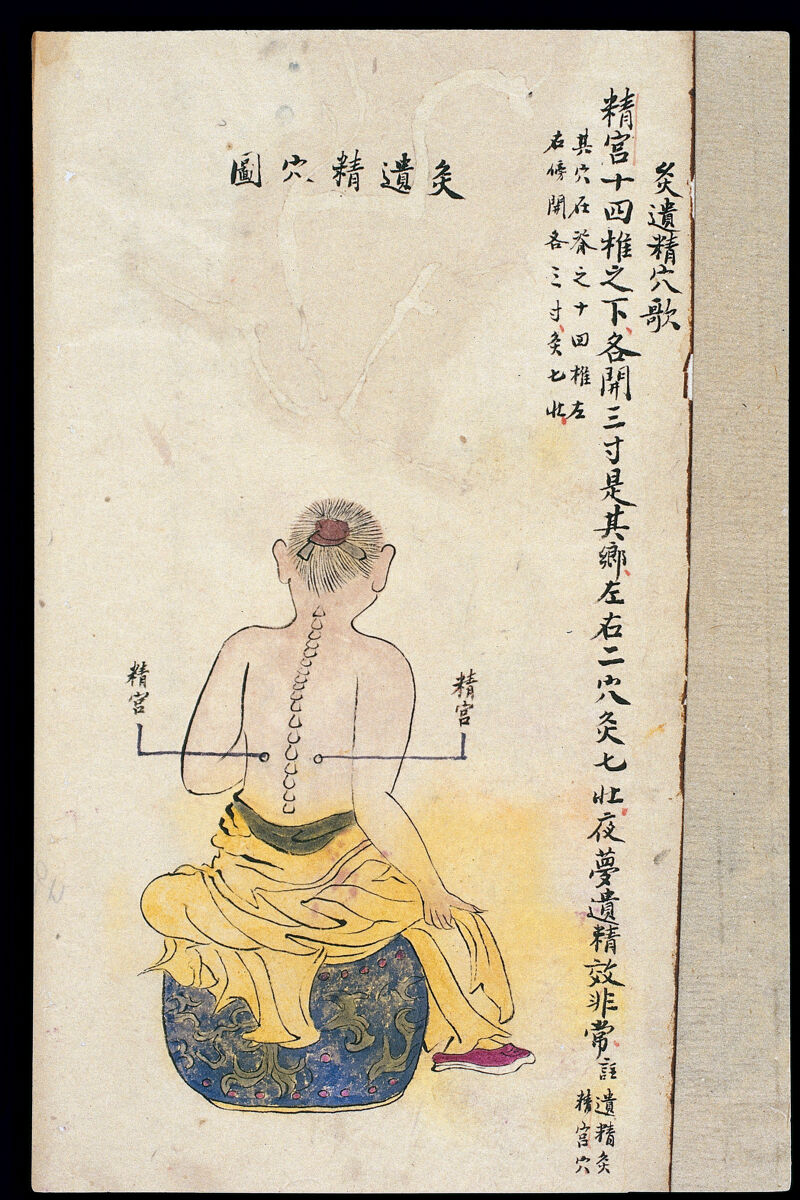 灸遺精穴歌
精宮十四椎之下各開三寸是其鄉左右二穴灸七壯夜夢遺精效非常註遺精灸
精宮穴
其穴在脊之十四椎左
右傍開各三寸灸七壯
灸遺精穴圖
精宮
精宮